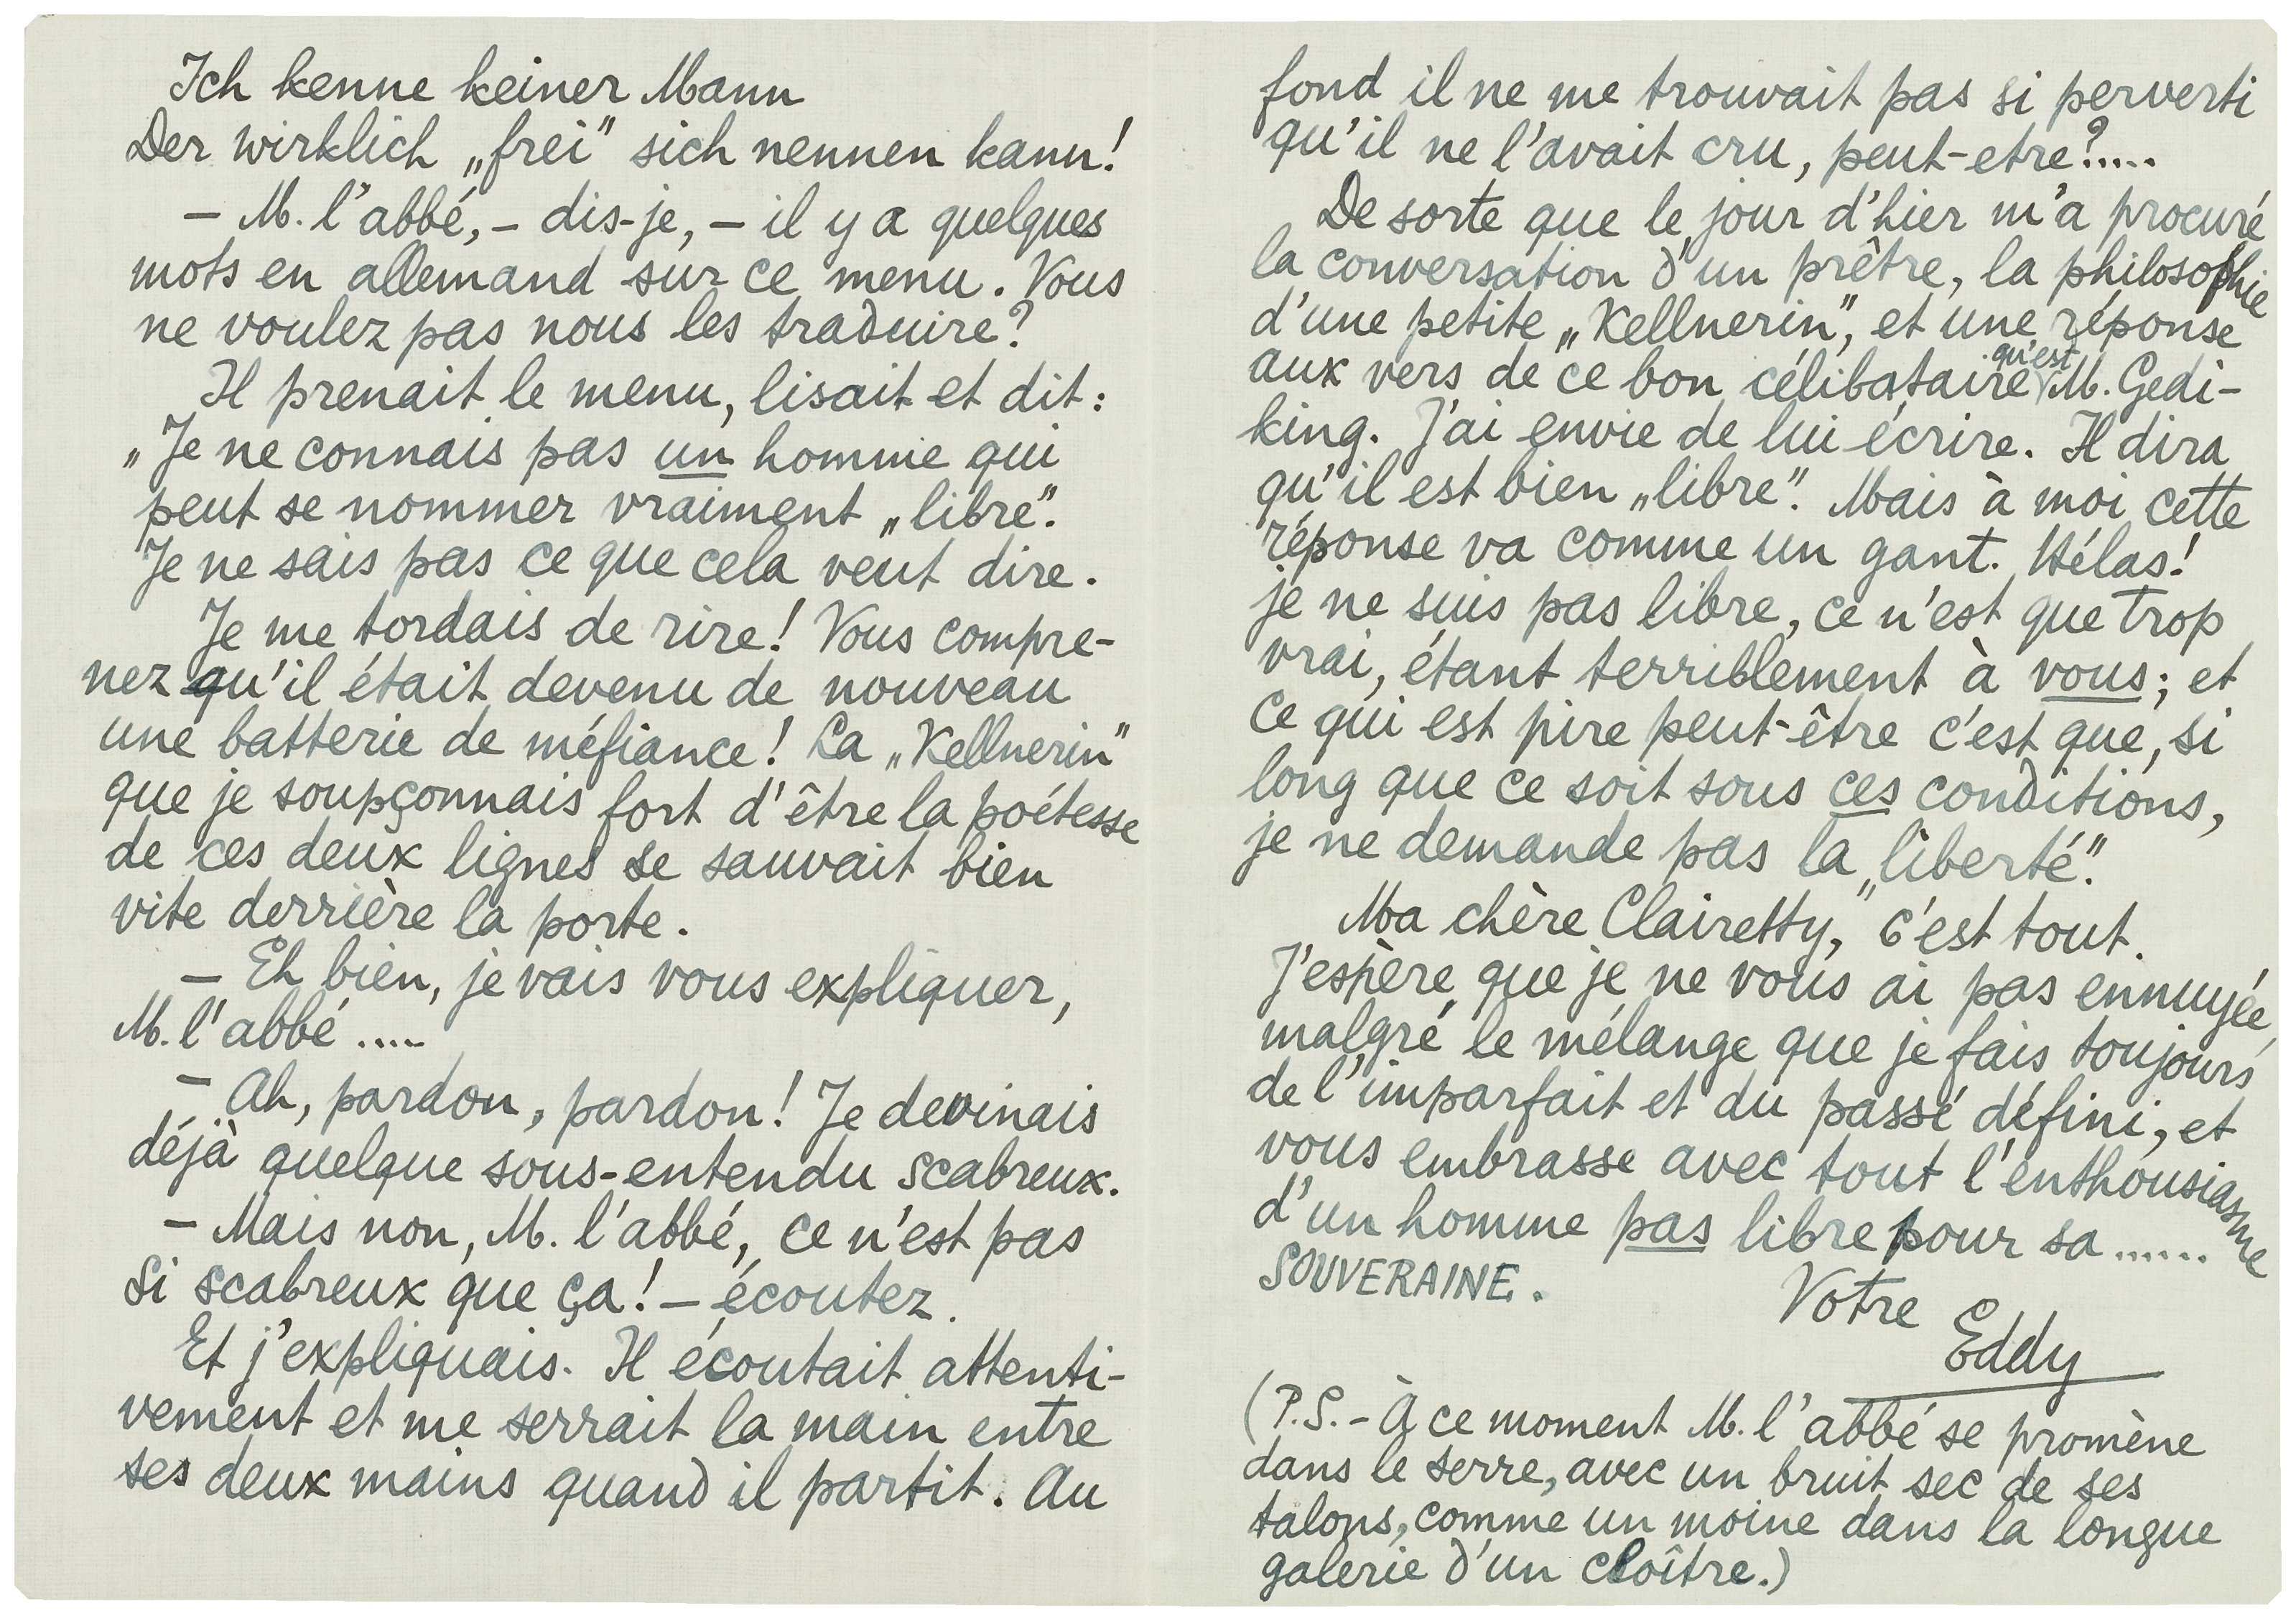 Ich kenne keiner Mann
Der wirklich „frei" sich nennen kann!
– M. l'abbé, – dis-je, – il y a quelques
mots en allemand sur ce menu. Vous
ne voulez pas nous les traduire?
Il prenait le menu, lisait et dit:
„Je ne connais pas un homme qui
peut se nommer vraiment „libre".
Je ne sais pas ce que cela veut dire.
Je me tordais de rire! Vous compre-
nez qu'il était devenu de nouveau
une batterie de méfiance! La „Kellnerin"
que je soupçonnais fort d'être la poétesse
de ces deux lignes se sauvait bien
vite derrière la porte.
– Eh bien, je vais vous expliquer,
M. l'abbé .....
– Ah, pardon, pardon! Je devinais
déjà quelque sous-entendu scabreux.
– Mais non, M. l'abbé, ce n'est pas
si scabreux que ça! – écoutez.
Et j'expliquais. Il écoutait attenti-
vement et me serrait la main entre
ses deux mains quand il partit. Au
fond il ne me trouvait pas si perverti
qu'il ne l'avait cru, peut-etre?.....
De sorte que le jour d'hier m'a procuré
la conversation d'un prêtre, la philosophie
d'une petite „Kellnerin", et une réponse
aux vers de ce bon célibataire qu'est M. Gedi-
king. J'ai envie de lui écrire. Il dira
qu'il est bien „libre". Mais à moi cette
réponse va comme un gant. Hélas!
je ne suis pas libre, ce n'est que trop
vrai, étant terriblement à vous; et
ce qui est pire peut-être c'est que, si
long que ce soit sous ces conditions,
je ne demande pas la „liberté".
Ma chère Clairetty, c'est tout.
J'espère que je ne vous ai pas ennuyée,
malgré le mélange que je fais toujours
de l'imparfait et du passé défini, et
vous embrasse avec tout l'enthousiasme
d'un homme pas libre pour sa ......
SOUVERAINE.
Votre
Eddy
(P.S. – À ce moment M. l'abbé se promène
dans le serre, avec un bruit sec de ses
talons, comme un moine dans la longue
galerie d'un cloître.)